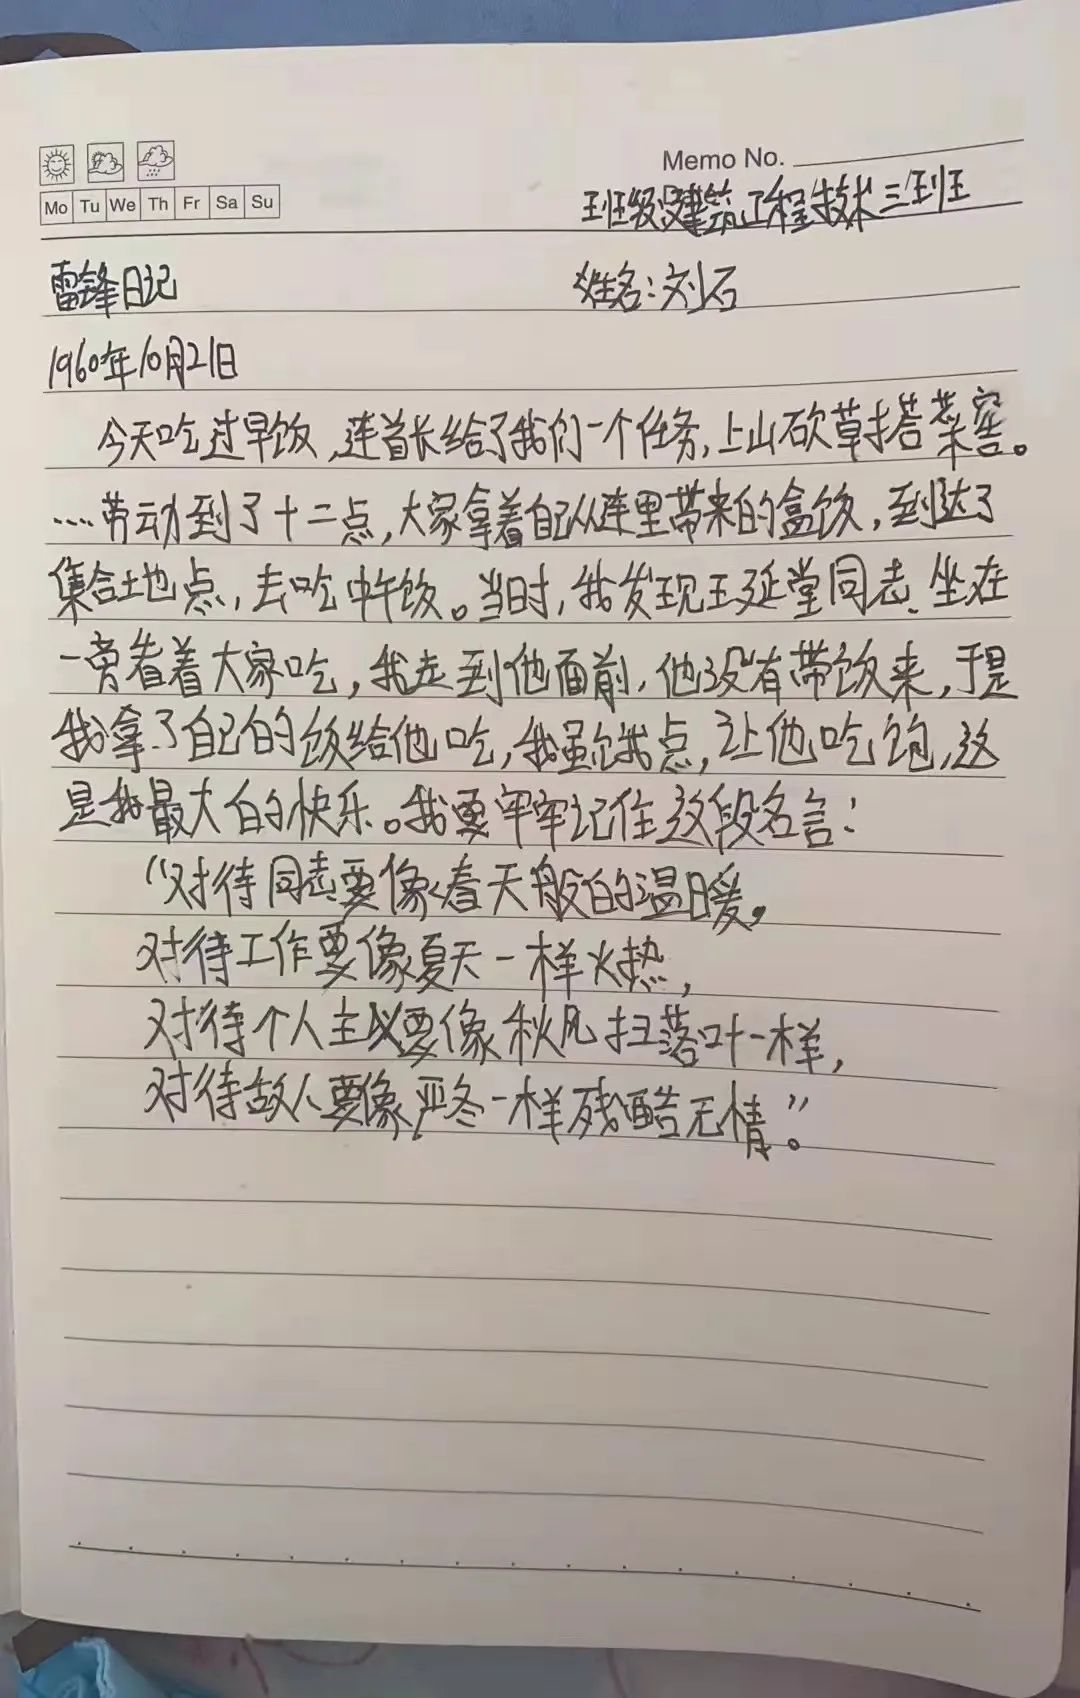 Memo No.
Mo Tu We Th Fr Sa Su
班级:建筑工程技术三班
雷锋日记 姓名:刘石
1960年10月21日
今天吃过早饭,连首长给了我们一个任务,上山砍草搭菜窖。
....劳动到了十二点,大家拿着自己从连里带来的盒饭,到达了
集合地点,去吃中午饭。当时,我发现王延堂同志坐在
一旁看着大家吃,我走到他面前,他没有带饭来,于是
我拿了自己的饭给他吃,我虽饿点,让他吃饱,这
是我最大的快乐。我要牢牢记住这段名言:
“对待同志要像春天般的温暖,
对待工作要像夏天一样火热,
对待个人主义要像秋风扫落叶一样,
对待敌人要像严冬一样残酷无情”。